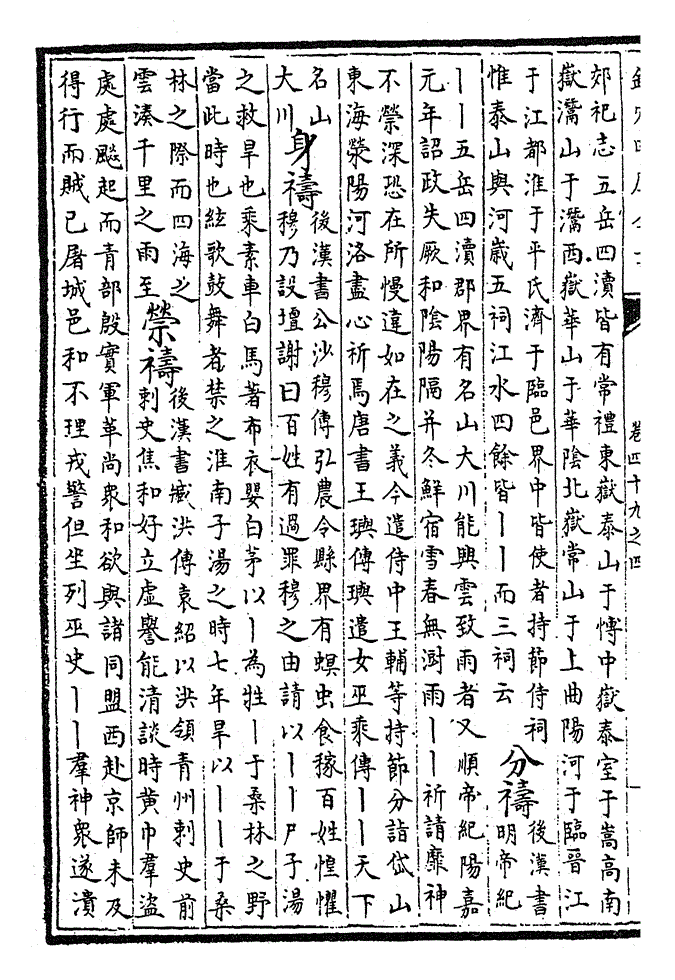 卷四十九之四
郊祀志五岳四瀆皆有常禮東嶽泰山于愽中嶽泰室于嵩高南
嶽灊山于灊西嶽華山于華陰北嶽常山于上曲陽河于臨晉江
于江都淮于平氏濟于臨邑界中皆使者持節侍祠
惟泰山與河歲五祠江水四餘皆丨丨而三祠云
分禱
後漢書
明帝紀
丨丨五岳四瀆郡界有名山大川能興雲致雨者又順帝紀陽嘉
元年詔政失厥和陰陽隔并冬鮮宿雪春無澍雨丨丨祈請靡神
不禜深恐在所慢違如在之義今遣侍中王輔等持節分詣岱山
東海滎陽河洛盡心祈焉唐書王璵傳璵遣女巫乘傳丨丨天下
名山
大川
身禱
後漢書公沙穆傳弘農令縣界有螟虫食稼百姓惶懼
穆乃設壇謝曰百姓有過罪穆之由請以丨丨尸子湯
之救旱也乘素車白馬著布衣嬰白茅以丨為牲丨于桑林之野
當此時也絃歌鼓舞者禁之淮南子湯之時七年旱以丨丨于桑
林之際而四海之
雲湊千里之雨至
禜禱
後漢書臧洪傳袁紹以洪領青州刺史前
刺史焦和好立虛譽能清談時黄巾羣盜
處處飈起而青部殷實軍革尚衆和欲與諸同盟西赴京師未及
得行而賊已屠城邑和不理戎警但坐列巫史丨丨羣神衆遂潰